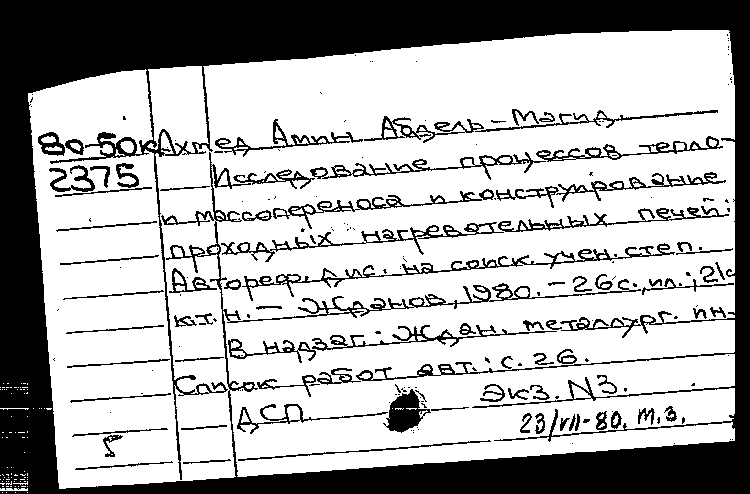 80-50к Ахмед Амин Абдель-Магид.
2375 Исследование процессов тепло-
и массопереноса и конструирование
проходных нагревательных печей:
Автореф. дис. на соиск. учен. степ.
к.т.н. - Жданов, 1980. - 26 с., ил.; 21с
В надзаг.: Ждан. металлург. ин-
Список работ авт.: с. 26.
ДСП. Экз. N3.
23/VII-80. М.З.